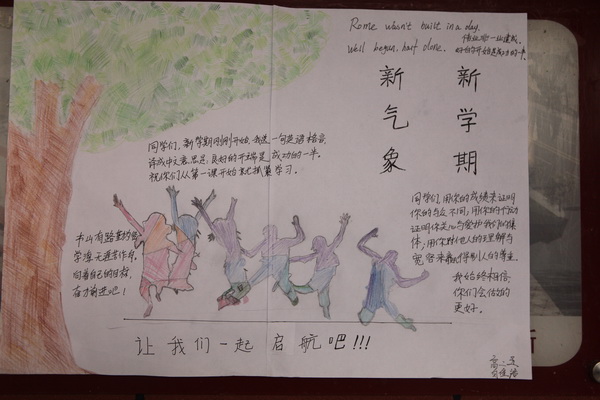 Rome wasn't built in a day.
Well began, half done.
好的开始是成功的一半。
新学期
新气象
同学们,新学期刚刚开始,我送一句英语格言
译成中文意思是:良好的开端是成功的一半。
祝你们从第一课开始就抓紧学习。
书山有路勤为径
学海无涯苦作舟。
向着自己的目标,
奋力前进吧!
同学们,用你的成绩来证明
你的与众不同,用你的行动
证明你是心爱护我们的集
体;用你对他人的理解与
宽容来赢得别人的尊重。
我始终相信
你们会做的
更好。
让我们一起启航吧!!!